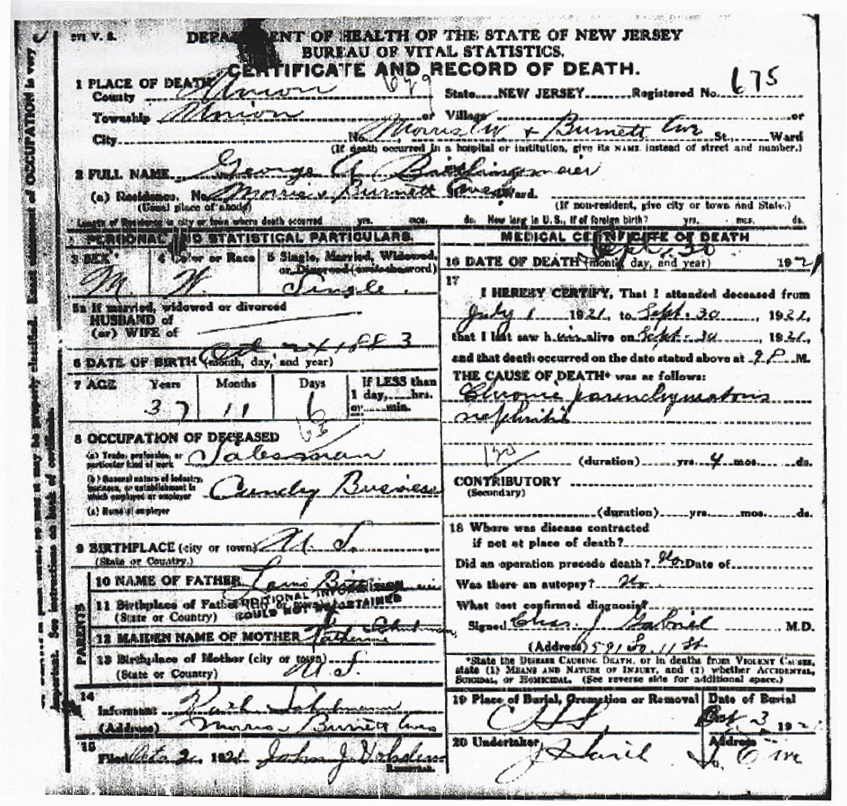 DEPA ENT OF HEALTH OF THE STATE OF NEW JERSEY
BUREAU OF VITAL STATISTICS.
CERTIFICATE AND RECORD OF DEATH.
1 PLACE OF DEATH
County Union State NEW JERSEY Registered No. 675
Township Union or Village or
City No. Morris Av & Burnett Ave St., Ward
(If death occurred in a hospital or institution, give its NAME instead of street and number.)
2 FULL NAME George A.
(a) Residence. No. Morris & Burnett Aves Ward.
(Usual place of abode) (If non-resident, give city or town and State.)
Length of Residence in city or town where death occurred yrs. mos. ds. How long in U.S., if of foreign birth? yrs. mos. ds.
PERSONAL AND STATISTICAL PARTICULARS.
3 SEX 4 Color or Race 5 Single, Married, Widowed,
or Divorced
M W. Single.
5a If married, widowed or divorced
HUSBAND of
(or) WIFE of
Oct 24 1883
6 DATE OF BIRTH (month, day, and year)
7 AGE Years Months Days If LESS than
1 day,....hrs.
or....min.
37 11 6
8 OCCUPATION OF DECEASED
(a) Trade, profession, or
particular kind of work Salesman
(b) General nature of industry,
business, or establishment in
which employed or employer Candy Business
(c) Name of employer
9 BIRTHPLACE (city or town) U. S.
(State or Country.)
PARENTS
10 NAME OF FATHER Louis
11 Birthplace of Father
(State or Country)
12 MAIDEN NAME OF MOTHER Katherine
13 Birthplace of Mother (city or town)
(State or Country) U. S.
14
Informant
(Address) Morris & Burnett Aves
15
Filed Oct. 2, 1921 John J.
REGISTRAR.
MEDICAL CERTIFICATE OF DEATH
Sept. 30
16 DATE OF DEATH (month, day, and year) 1921
17
I HEREBY CERTIFY, That I attended deceased from
July 1 1921, to Sept. 30, 1921,
that I last saw h im alive on Sept. 30, 1921,
and that death occurred on the date stated above at 9 P. M.
THE CAUSE OF DEATH* was as follows:
Chronic parenchymatous
nephritis
(duration) yrs. 4 mos. ds.
CONTRIBUTORY
(Secondary)
(duration) yrs. mos. ds.
18 Where was disease contracted
if not at place of death?
Did an operation precede death? No. Date of
Was there an autopsy? No
What test confirmed diagnosis?
Signed Chas. J. Gabriel M.D.
(Address) 591 So. 11 St.
*State the DISEASE CAUSING DEATH, or in deaths from VIOLENT CAUSES,
state (1) MEANS AND NATURE OF INJURY, and (2) whether ACCIDENTAL,
SUICIDAL, or HOMICIDAL. (See reverse side for additional space.)
19 Place of Burial, Cremation or Removal Date of Burial
Oct 3 192
20 Undertaker Address